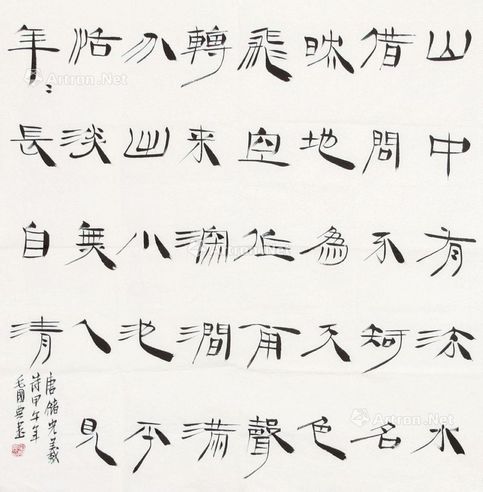 山中有流水
借問不知名
映地為天色
飛空作雨聲
轉来深澗滿
分出小池平
恬淡無人見
年〻長自清
唐儲光羲
詩甲午年
毛國典書
Artron.Net